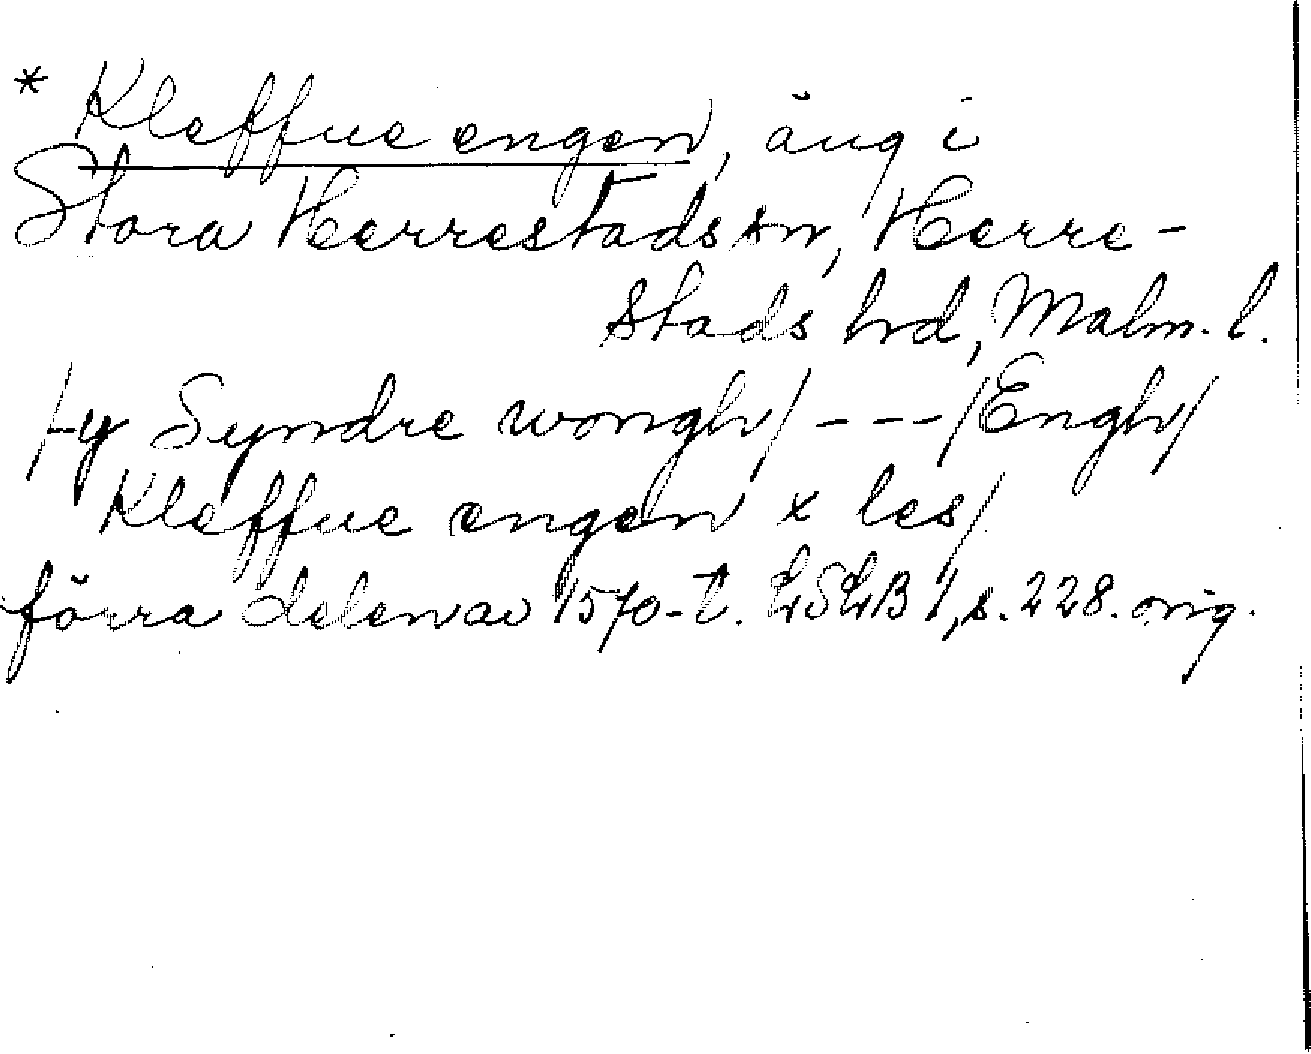 * Kleffue engen, äng i
Stora Herrestads sn, Herre-
stads hrd, Malm. l.
/-y Syndre wongh/ ---/Engh/
Kleffue engen x les/
förra delen av 1570-t. LSLB 1, s. 228. orig.